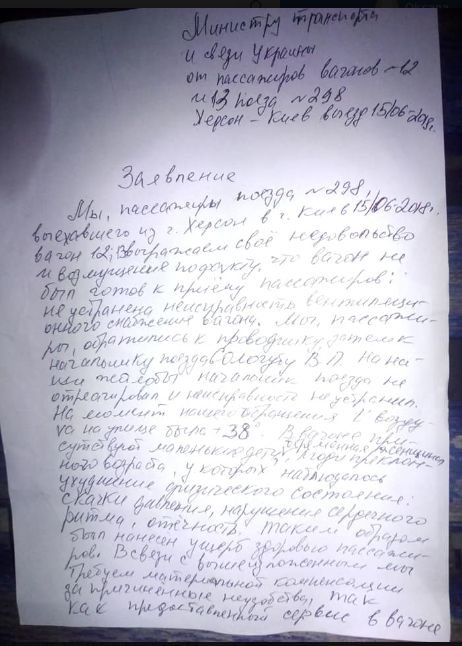 Министру транспорта
и связи Украины
от пассажиров вагонов №12
и 13 поезд №298
Херсон - Киев выезд 15/06-2018г.
Заявление
Мы, пассажиры поезда №298,
выехавшего из г. Херсон в г. Киев 15/06-2018г.
вагон 12, 13 выражаем своё недовольство
и возмущение по что вагон не
был готов к приёму пассажиров:
не устранена неисправность вентиляци-
онного снабжения вагона. Мы, пассажи-
ры, обратились к проводнику, затем к
начальнику поезда В.П. На на-
ши жалобы начальник поезда не
отреагировал и неисправность не устранил.
На момент нашего обращения t° возду-
ха на улице была +38°. В вагоне при-
сутствуют маленькие дети, беременная женщина
и люди преклон-
ного возраста, у которых наблюдалось
ухудшение физического состояния:
скачки давления, нарушение сердечного
ритма, отёчность. Таким образом
был нанесен ущерб здоровью пассажи-
ров. В связи с вышеизложенным мы
требуем материальной компенсации
за причиненные неудобства, так
как предоставленный сервис в вагоне